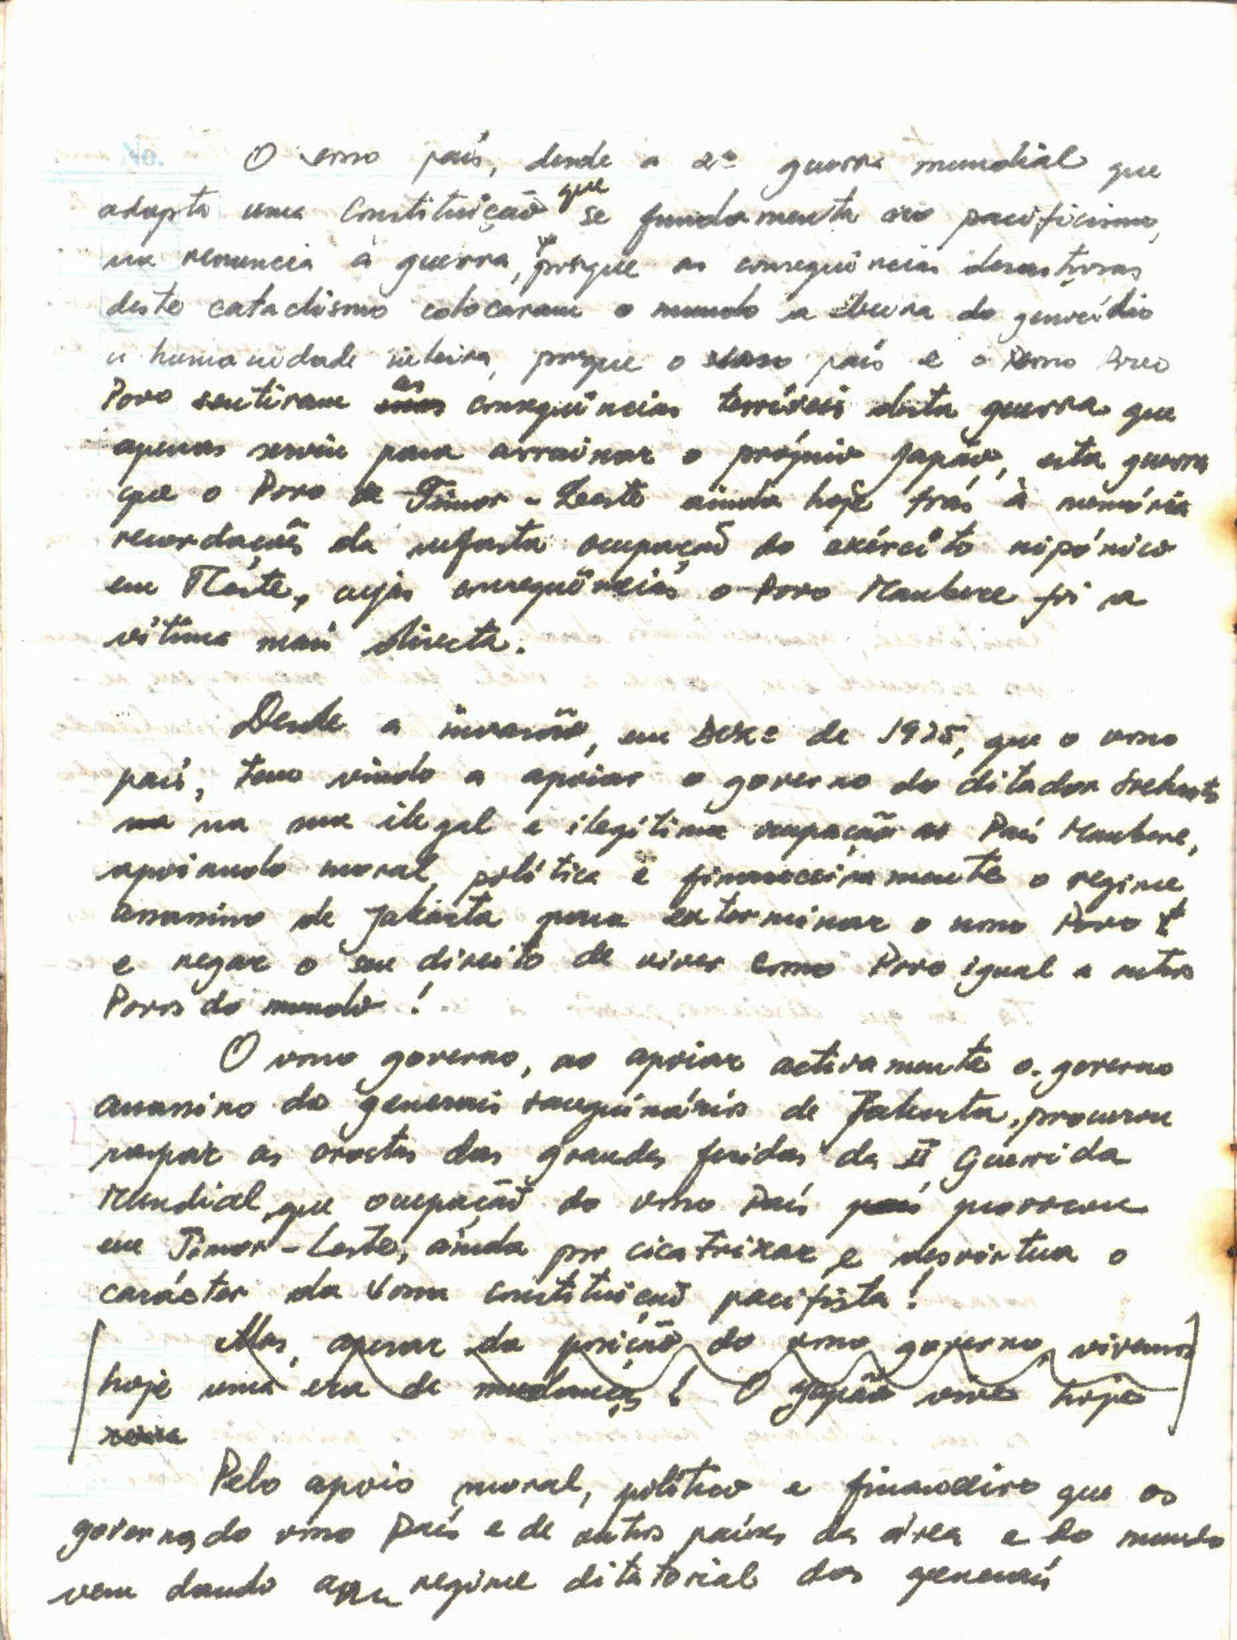 O vosso país, desde a 2ª guerra mundial que
adopta uma Constituição que se fundamenta no pacificismo,
na renuncia à guerra, porque as consequências desastrosas
deste cataclismo colocaram o mundo a beira do genocídio
a humanidade inteira, porque o vosso país e o vosso
Povo sentiram as consequências terríveis desta guerra que
apenas serviu para arruinar o próprio Japão, esta guerra
que o Povo de Timor-Leste ainda hoje trás à memória
recordações da nefasta ocupação do exército nipónico
em T. Leste, cujas consequências o Povo Maubere foi a
vítima mais directa.
Desde a invasão, em Dez. de 1975, que o vosso
país, tem vindo a apoiar o governo do ditador Suharto
na sua ilegal e ilegítima ocupação ao País Maubere,
apoiando moral, política e financeiramente o regime
assassino de Jakarta para exterminar o nosso Povo
e negar o seu direito de viver como Povo igual a outros
Povos do mundo!
O vosso governo, ao apoiar activamente o governo
assassino do generais sanguinários de Jakarta, procurou
raspar as crostas das grandes feridas da II Guerrida
Mundial, que ocupação do vosso País provocou
em Timor-Leste, ainda por cicatrizar e desvirtua o
carácter da vossa Constituição pacifista!
Mas, apesar da posição do vosso governo, vivemos
hoje uma era de mudanças! O Japão vive hoje
Pelo apoio moral, político e financeiro que os
governos do vosso País e de outros países da área e do mundo
vem dando ao regime ditatorial dos generais